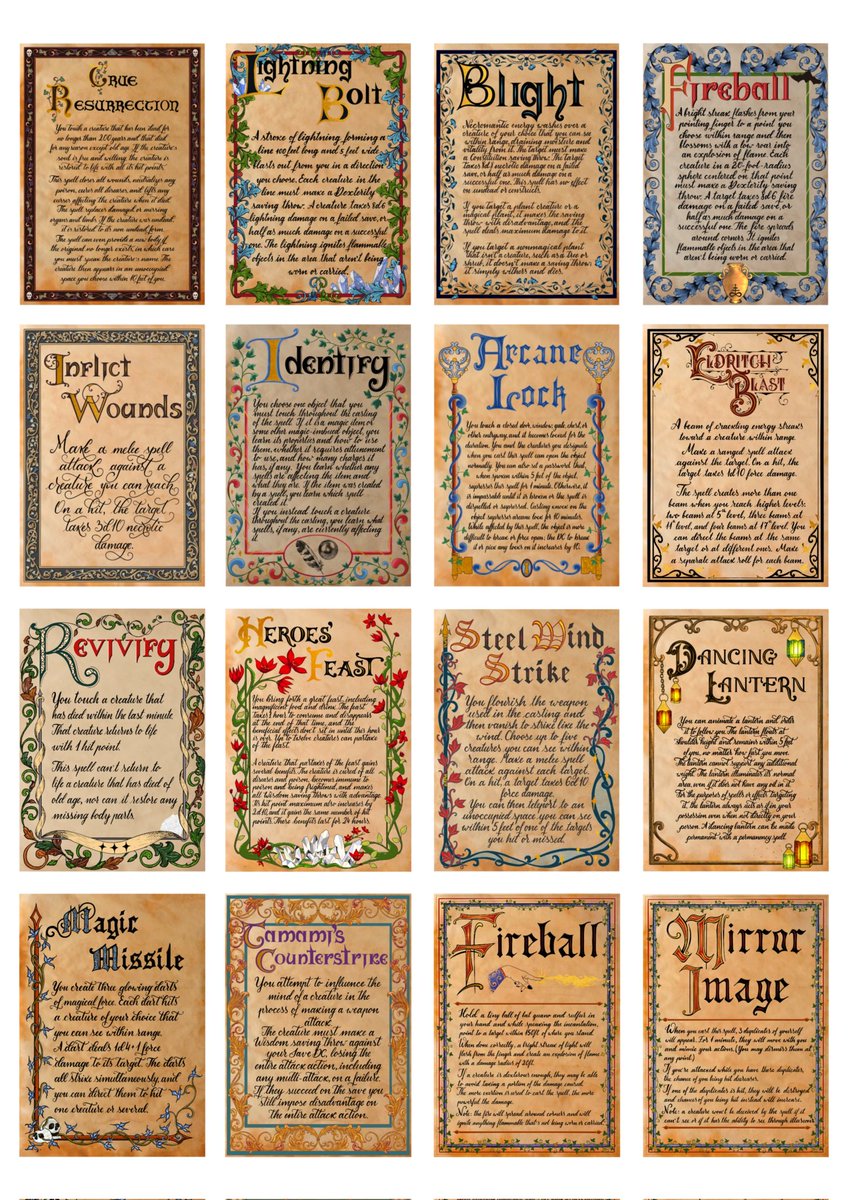 True
Resurrection
You touch a creature that has been dead for
no longer than 200 years and that died
for any reason except old age. If the creature's
soul is free and willing, the creature is
restored to life with all its hit points.
This spell closes all wounds, neutralises any
poison, cures all diseases, and lifts any
curses affecting the creature when it died.
The spell replaces damaged or missing
organs and limbs. If the creature was undead,
it is restored to its non undead form.
The spell can even provide a new body if
the original no longer exists, in which case
you must speak the creature's name. The
creature then appears in an unoccupied
space you choose within 10 feet of you.
Lightning
Bolt
A stroke of lightning, forming a
line 100 feet long and 5 feet wide
blasts out from you in a direction
you choose. Each creature in the
line must make a Dexterity
saving throw. A creature takes 8d6
lightning damage on a failed save, or
half as much damage on a successful
one. The lightning ignites flammable
objects in the area that aren't being
worn or carried.
Blight
Necromantic energy washes over a
creature of your choice that you can see
within range, draining moisture and
vitality from it. The target must make
a Constitution saving throw. The target
takes 8d8 necrotic damage on a failed
save, or half as much damage on a
successful one. This spell has no effect
on undead or constructs.
If you target a plant creature or a
magical plant, it makes the saving
throw with disadvantage, and the
spell deals maximum damage to it.
If you target a nonmagical plant
that isn't a creature, such as a tree or
shrub, it doesn't make a saving throw
it simply withers and dies.
Fireball
A bright streak flashes from your
pointing finger to a point you
choose within range and then
blossoms with a low roar into
an explosion of flame. Each
creature in a 20-foot-radius
sphere centered on that point
must make a Dexterity saving
throw. A target takes 8d6 fire
damage on a failed save, or
half as much damage on a
successful one. The fire spreads
around corners. It ignites
flammable objects in the area that
aren't being worn or carried.
Inflict
Wounds
Make a melee spell
attack against a
creature you can reach.
On a hit, the target
takes 3d10 necrotic
damage.
Identify
You choose one object that you
must touch throughout the casting
of the spell. If it is a magic item or
some other magic-imbued object, you
learn its properties and how to use
them, whether it requires attunement
to use, and how many charges it
has, if any. You learn whether any
spells are affecting the item and
what they are. If the item was created
by a spell, you learn which spell
created it.
If you instead touch a creature
throughout the casting, you learn what
spells, if any, are currently affecting
Arcane
Lock
You touch a closed door, window, gate, chest, or
other entryway, and it becomes locked for the
duration. You and the creatures you designate
when you cast this spell can open the object
normally. You can also set a password that,
when spoken within 5 feet of the object,
supresses this spell for 1 minute. Otherwise, it
is impassable until it is broken or the spell is
dispelled or supressed. Casting knock on the
object supresses arcane lock for 10 minutes.
While affected by this spell, the object is more
difficult to break or force open; the DC to break
it or pick any lock on it increases by 10.
Eldritch
Blast
A beam of crackling energy streaks
toward a creature within range.
Make a ranged spell attack
against the target. On a hit, the
target takes 1d10 force damage.
The spell creates more than one
beam when you reach higher levels:
two beams at 5th level, three beams at
11th level, and four beams at 17th level. You
can direct the beams at the same
target or at different ones. Make
a separate attack roll for each beam.
Revivify
You touch a creature that
has died within the last minute.
That creature returns to life
with 1 hit point.
This spell can't return to
life a creature that has died of
old age, nor can it restore any
missing body parts.
Heroes'
Feast
You bring forth a great feast, including
magnificent food and drink. The feast
takes 1 hour to consume and disappears
at the end of that time, and the
beneficial effects don't set in until this hour
is over. Up to twelve creatures can partake
of the feast.
A creature that partakes of the feast gains
several benefits. The creature is cured of all
disease and poison, becomes immune to
poison and being frightened, and makes
all Wisdom saving throws with advantage.
Its hit point maximum also increases by
2d10, and it gains the same number of hit
points. These benefits last for 24 hours.
Steel Wind
Strike
You flourish the weapon
used in the casting and
then vanish to strike like the
wind. Choose up to five
creatures you can see within
range. Make a melee spell
attack against each target.
On a hit, a target takes 6d10
force damage.
You can then teleport to an
unoccupied space you can see
within 5 feet of one of the targets
you hit or missed.
Dancing
Lantern
You can animate a lantern and order
it to follow you. The lantern floats at
shoulder height and remains within 5 feet
of you, no matter how fast you move.
The lantern cannot support any additional
weight. The lantern illuminates its normal
area, even if it does not have any oil in it.
For the purposes of spells or effects targeting
it, the lantern always acts as if in your
possession even when not directly on your
person. A dancing lantern can be made
permanent with a permanency spell.
Magic
Missile
You create three glowing darts
of magical force. Each dart hits
a creature of your choice that
you can see within range.
A dart deals 1d4+1 force
damage to its target. The darts
all strike simultaneously, and
you can direct them to hit
one creature or several.
Tamami's
Counterstrike
You attempt to influence the
mind of a creature in the
process of making a weapon
attack.
The creature must make a
Wisdom saving throw against
your Save DC, losing the
entire attack action, including
any multi-attack, on a failure.
If they succeed on the save you
still impose disadvantage on
the entire attack action.
Fireball
Hold a tiny ball of bat guano and sulfur in
your hand and while speaking the incantation,
point to a target within 150ft of where you stand.
When done correctly, a bright streak of light will
flash from the finger and create an explosion of flame with
a damage radius of 20ft.
If a creature is dexterous enough, they may be able
to avoid taking a portion of the damage caused.
The more exertion is used to cast the spell, the more
powerful the damage.
Note: the fire will spread around corners and will
ignite anything flammable that's not being worn or carried.
Mirror
Image
When you cast this spell, 3 duplicates of yourself
will appear. For 1 minute, they will move with you
and mimic your actions. (You may dismiss them at
any point.)
If you're attacked while you have these duplicates,
the chance of you being hit decreases.
If one of the duplicates is hit, they will be destroyed
and chances of you being hit instead will increase.
Note: a creature won't be deceived by the spell if it
can't see or if it has the ability to see through illusions.